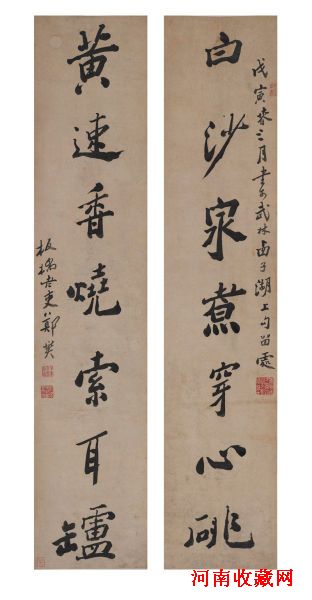 戊寅春三月書於武林西子湖上勾留處
白沙泉煮穿心
黄速香燒索耳罏
板橋老吏鄭燮
河南收藏网